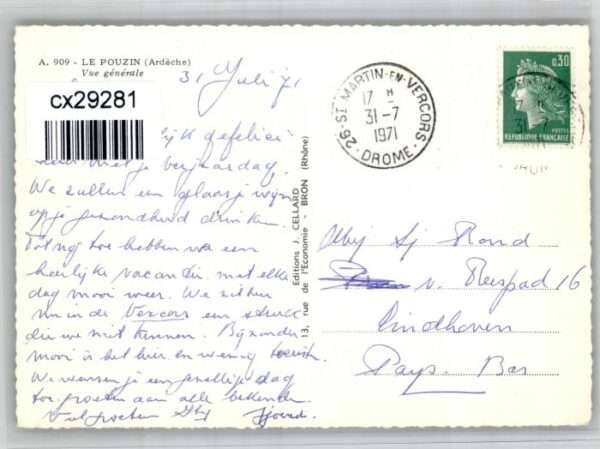 A. 909 - LE POUZIN (Ardèche)
Vue générale
31 Juli 71
cx29281
gefelici
met je verjaardag.
We zullen een glaasje wijn
op je gezondheid drinken.
Tot nog toe hebben we een
heerlijke vacantie, met elke
dag mooi weer. We zitten
nu in de Vercors een streek
die we niet kennen. Bijzonder
mooi is het hier en weinig
We wensen je een gezellige dag
toe, groeten aan alle bekenden
Veel groeten Sjoerd.
Editions J. CELLARD
13, rue de l'Economie - BRON (Rhône)
26-ST MARTIN-EN-VERCORS
17 H
31-7
1971
DROME
0,30
POSTES
REPUBLIQUE FRANÇAISE
Mej
v. Reespad 16
Eindhoven
Pays-Bas